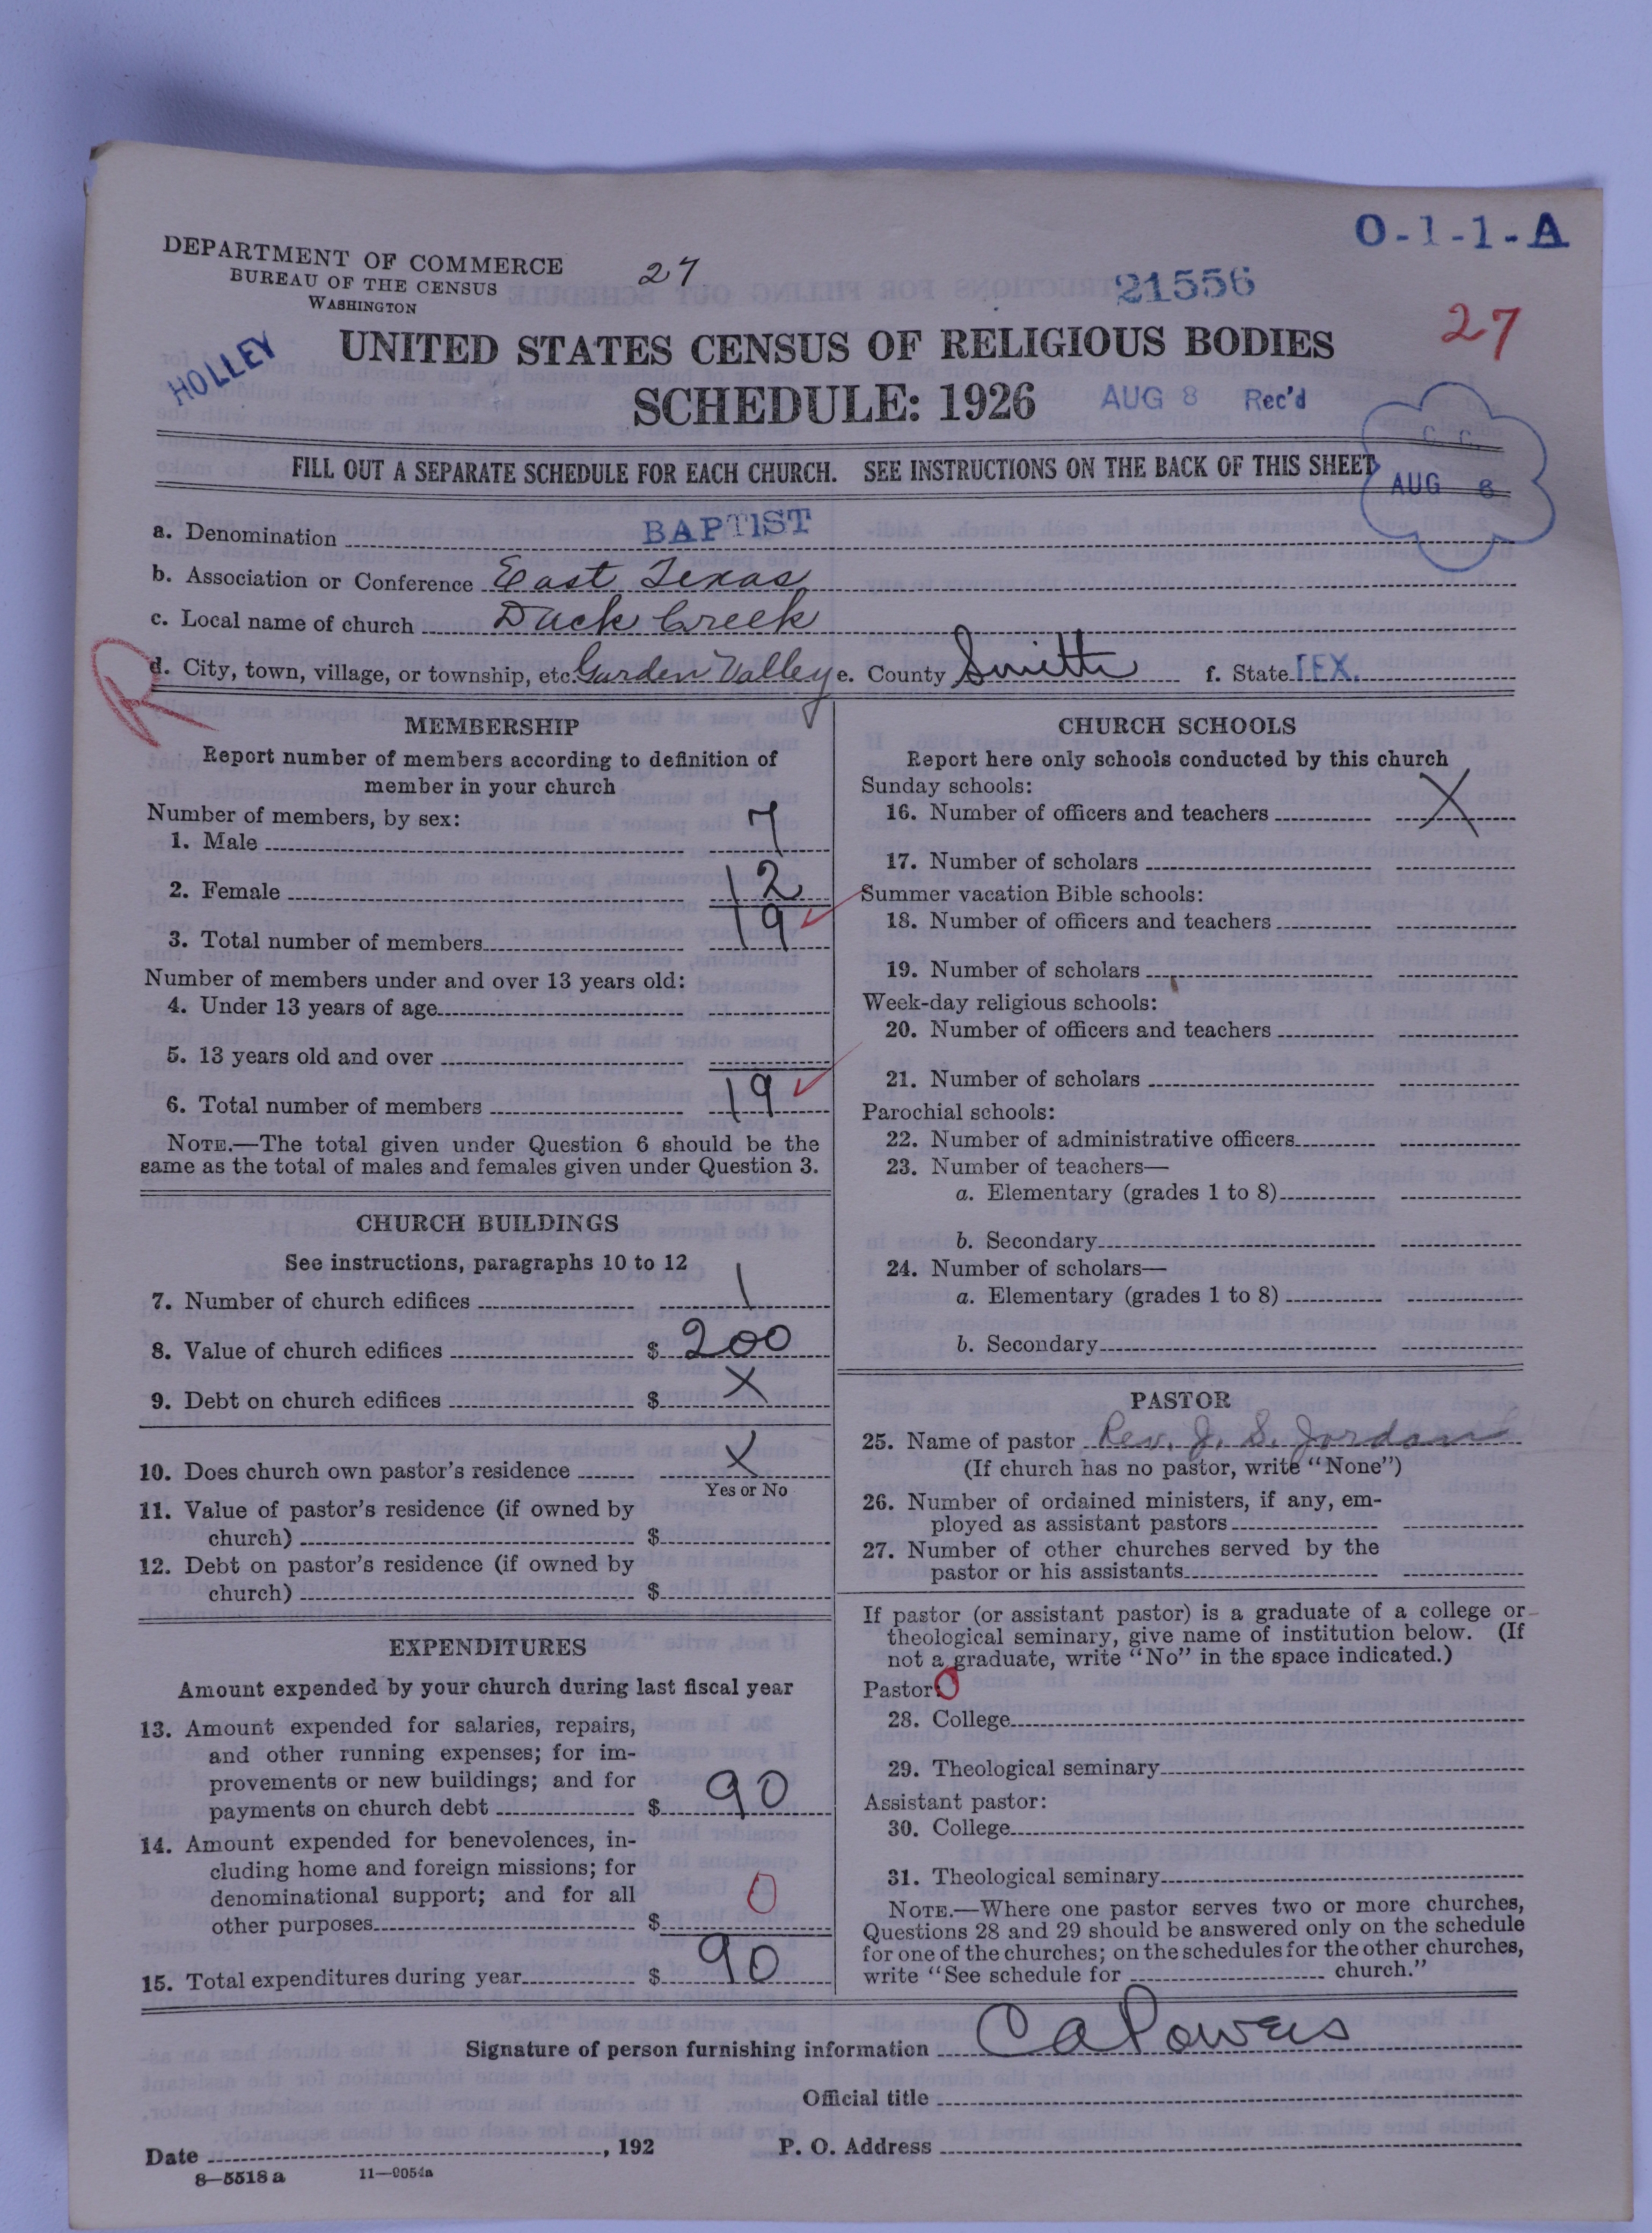 O-1-1-A
DEPARTMENT OF COMMERCE
BUREAU OF THE CENSUS
WASHINGTON
27
21556
27
HOLLEY
UNITED STATES CENSUS OF RELIGIOUS BODIES
SCHEDULE: 1926
AUG 8 Rec'd
C. C.
AUG 8
FILL OUT A SEPARATE SCHEDULE FOR EACH CHURCH. SEE INSTRUCTIONS ON THE BACK OF THIS SHEET
a. Denomination BAPTIST
b. Association or Conference East Texas
c. Local name of church Duck Creek
R
d. City, town, village, or township, etc. Garden Valley e. County Smith f. State TEX.
MEMBERSHIP
Report number of members according to definition of
member in your church
Number of members, by sex:
1. Male 7
2. Female 12
3. Total number of members 19
Number of members under and over 13 years old:
4. Under 13 years of age
5. 13 years old and over
6. Total number of members 19
NOTE.—The total given under Question 6 should be the
same as the total of males and females given under Question 3.
CHURCH BUILDINGS
See instructions, paragraphs 10 to 12
7. Number of church edifices 1
8. Value of church edifices $ 200
9. Debt on church edifices $ X
10. Does church own pastor's residence X
Yes or No
11. Value of pastor's residence (if owned by
church) $
12. Debt on pastor's residence (if owned by
church) $
EXPENDITURES
Amount expended by your church during last fiscal year
13. Amount expended for salaries, repairs,
and other running expenses; for im-
provements or new buildings; and for
payments on church debt $ 90
14. Amount expended for benevolences, in-
cluding home and foreign missions; for
denominational support; and for all
other purposes $ 0
15. Total expenditures during year $ 90
CHURCH SCHOOLS
Report here only schools conducted by this church
Sunday schools:
16. Number of officers and teachers X
17. Number of scholars
Summer vacation Bible schools:
18. Number of officers and teachers
19. Number of scholars
Week-day religious schools:
20. Number of officers and teachers
21. Number of scholars
Parochial schools:
22. Number of administrative officers
23. Number of teachers—
a. Elementary (grades 1 to 8)
b. Secondary
24. Number of scholars—
a. Elementary (grades 1 to 8)
b. Secondary
PASTOR
25. Name of pastor Rev. J. S. Jordan
(If church has no pastor, write "None")
26. Number of ordained ministers, if any, em-
ployed as assistant pastors
27. Number of other churches served by the
pastor or his assistants
If pastor (or assistant pastor) is a graduate of a college or
theological seminary, give name of institution below. (If
not a graduate, write "No" in the space indicated.)
Pastor: 0
28. College
29. Theological seminary
Assistant pastor:
30. College
31. Theological seminary
NOTE.—Where one pastor serves two or more churches,
Questions 28 and 29 should be answered only on the schedule
for one of the churches; on the schedules for the other churches,
write "See schedule for church."
Signature of person furnishing information C A Powers
Official title
Date , 192 P. O. Address
8—5518 a 11—9054a